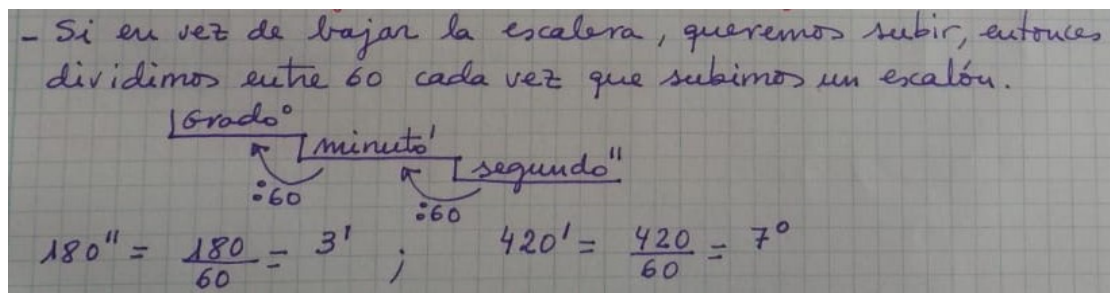 - Si en vez de bajar la escalera, queremos subir, entonces
dividimos entre 60 cada vez que subimos un escalón.
Grado°
minuto'
segundo"
:60
:60
180" = 180/60 = 3' ; 420' = 420/60 = 7°